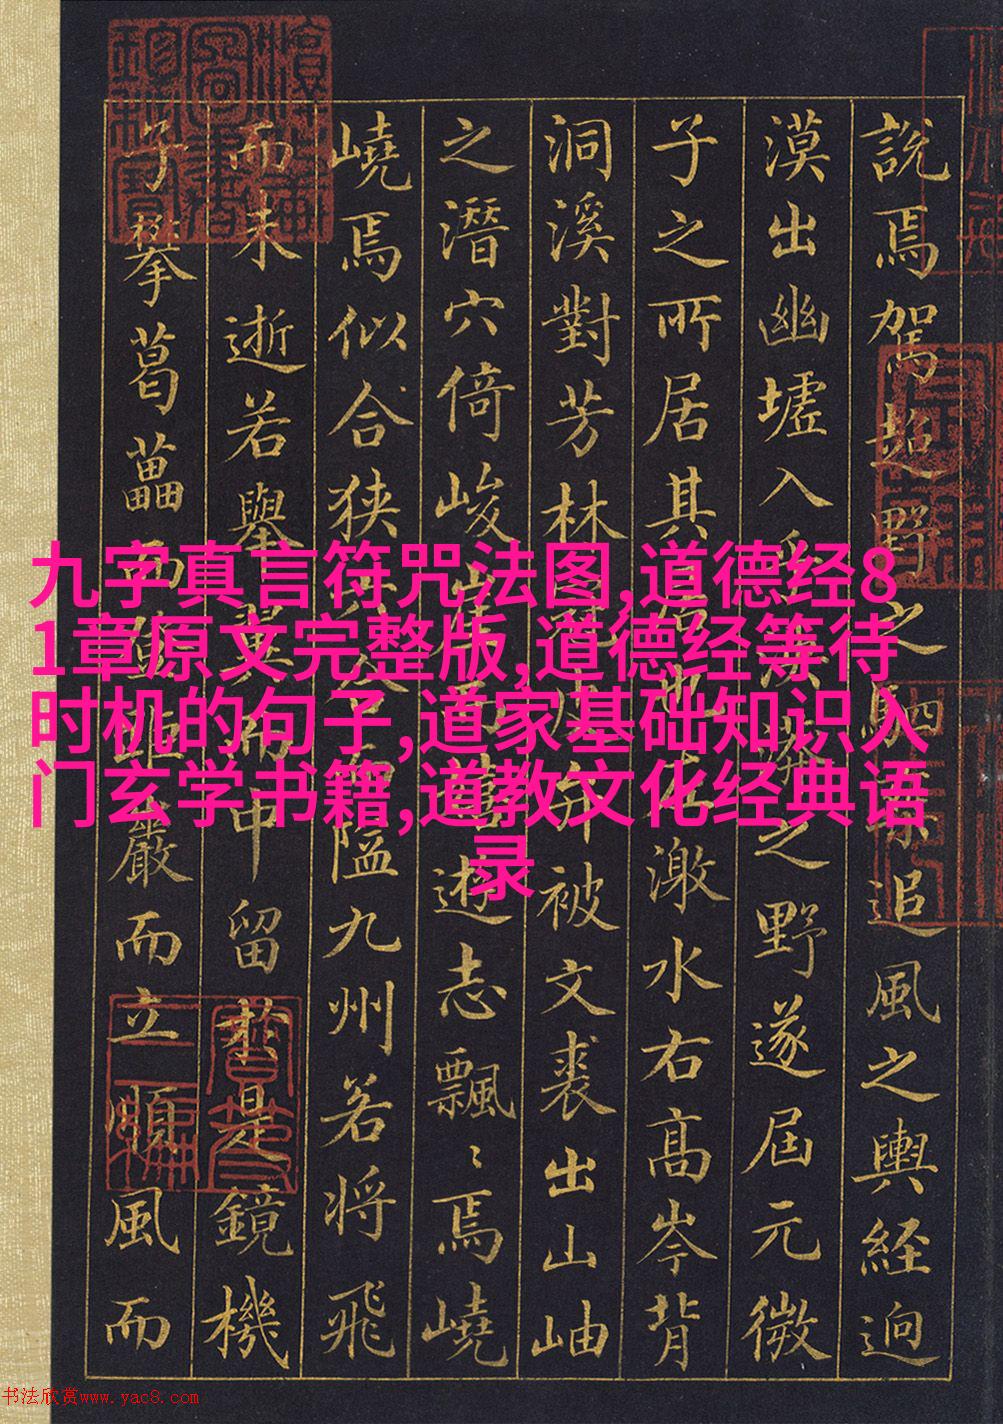 九字真言符咒法图,道德经8
1章原文完整版,道德经等待
时机的句子,道家基础知识入
门玄学书籍,道教文化经典语
录
說焉駕超野之駟追風之輿經迥
漠出幽墟入乎之野遂屆元微
子之所居其激水右高岑背
洞溪對芳林弁被文裘出山岫
之潛穴倚峻崖遊志飄〻焉嶢
嶢焉似合狹隘九州若將飛
而未逝若舉翼而中留於是鏡機
子攀葛藟而登距巖而立順風而
书法欣赏www.yac8.com